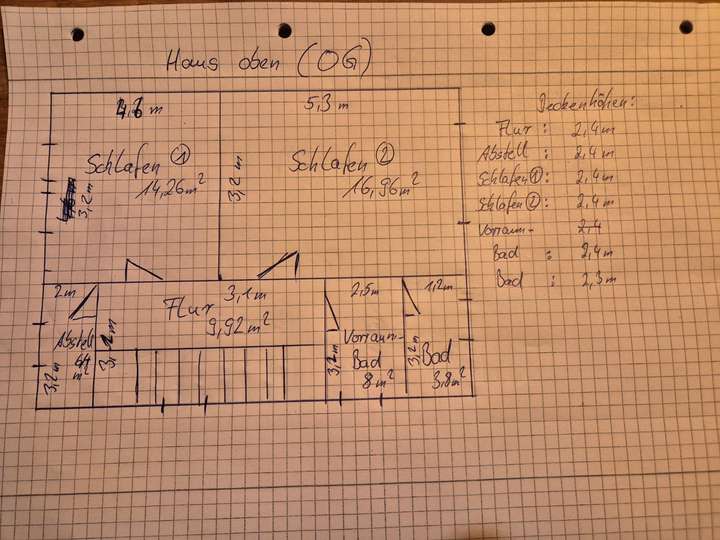 Haus oben (OG)
5,3 m
Schlafen ①
14,26 m²
3,2 m
Schlafen ②
16,96 m²
3,2 m
2 m
Flur
3,1 m
9,92 m²
2,5 m
1,2 m
Abstell
m²
3,2 m
Vorraum-
Bad
8 m²
3,2 m
Bad
3,8 m²
3,2 m
Deckenhöhen:
Flur : 2,4 m
Abstell : 2,4 m
Schlafen ① : 2,4 m
Schlafen ② : 2,4 m
Vorraum- 2,4
Bad : 2,4 m
Bad : 2,3 m